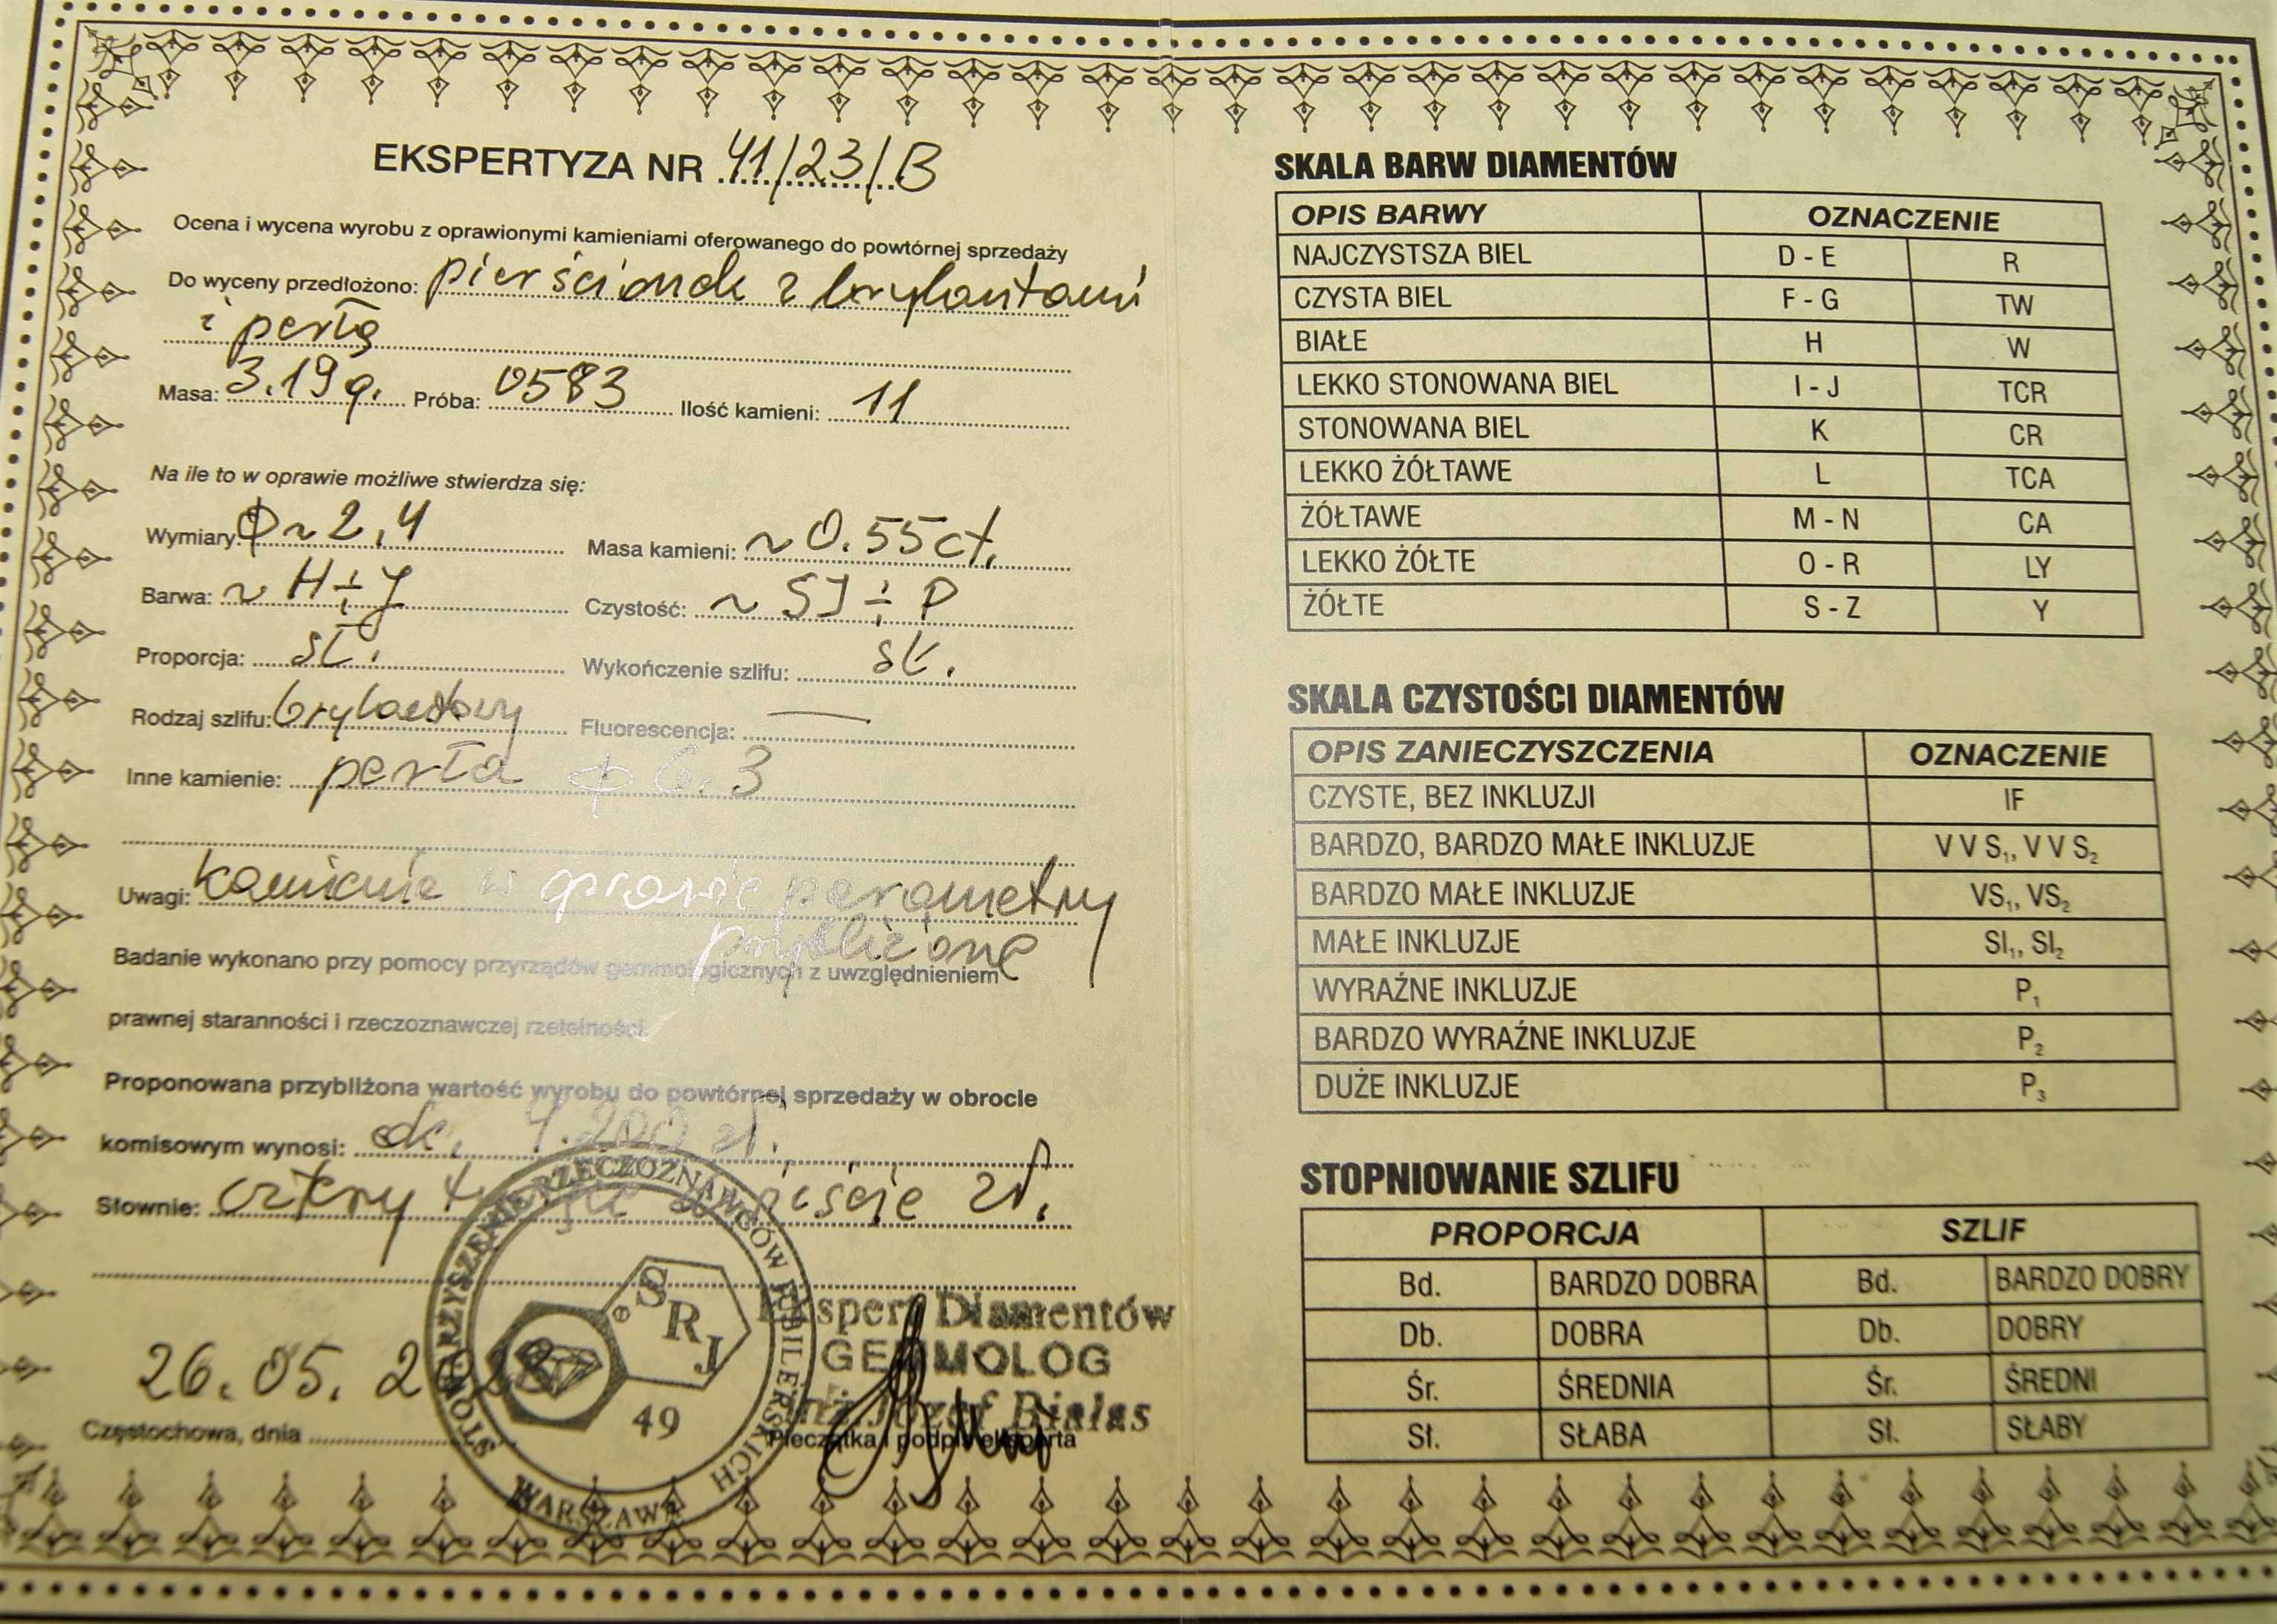 EKSPERTYZA NR 41/23/B
Ocena i wycena wyrobu z oprawionymi kamieniami oferowanego do powtórnej sprzedaży
Do wyceny przedłożono: pierścionek z brylantami
i perłą
Masa: 3.19 g. Próba: 0583 Ilość kamieni: 11
Na ile to w oprawie możliwe stwierdza się:
Wymiary: ϕ ~ 2,4 Masa kamieni: ~ 0.55 ct.
Barwa: ~ H ÷ J Czystość: ~ SI ÷ P
Proporcja: sł. Wykończenie szlifu: sł.
Rodzaj szlifu: brylantowy Fluorescencja: —
Inne kamienie: perła ϕ 6.3
Uwagi: kamienie w oprawie parametry
przybliżone
Badanie wykonano przy pomocy przyrządów gemmologicznych z uwzględnieniem
prawnej staranności i rzeczoznawczej rzetelności.
Proponowana przybliżona wartość wyrobu do powtórnej sprzedaży w obrocie
komisowym wynosi: ok. 4.200 zł.
Słownie: cztery tysiące dwieście zł.
STOWARZYSZENIE RZECZOZNAWCÓW JUBILERSKICH
WARSZAWA
S R J
49
Ekspert Diamentów
GEMMOLOG
inż. Józef Białas
26. 05. 2023
Częstochowa, dnia
Pieczątka i podpis eksperta
SKALA BARW DIAMENTÓW
OPIS BARWY OZNACZENIE
NAJCZYSTSZA BIEL D - E R
CZYSTA BIEL F - G TW
BIAŁE H W
LEKKO STONOWANA BIEL I - J TCR
STONOWANA BIEL K CR
LEKKO ŻÓŁTAWE L TCA
ŻÓŁTAWE M - N CA
LEKKO ŻÓŁTE O - R LY
ŻÓŁTE S - Z Y
SKALA CZYSTOŚCI DIAMENTÓW
OPIS ZANIECZYSZCZENIA OZNACZENIE
CZYSTE, BEZ INKLUZJI IF
BARDZO, BARDZO MAŁE INKLUZJE V V S₁, V V S₂
BARDZO MAŁE INKLUZJE VS₁, VS₂
MAŁE INKLUZJE SI₁, SI₂
WYRAŹNE INKLUZJE P₁
BARDZO WYRAŹNE INKLUZJE P₂
DUŻE INKLUZJE P₃
STOPNIOWANIE SZLIFU
PROPORCJA SZLIF
Bd. BARDZO DOBRA Bd. BARDZO DOBRY
Db. DOBRA Db. DOBRY
Śr. ŚREDNIA Śr. ŚREDNI
Sł. SŁABA Sł. SŁABY